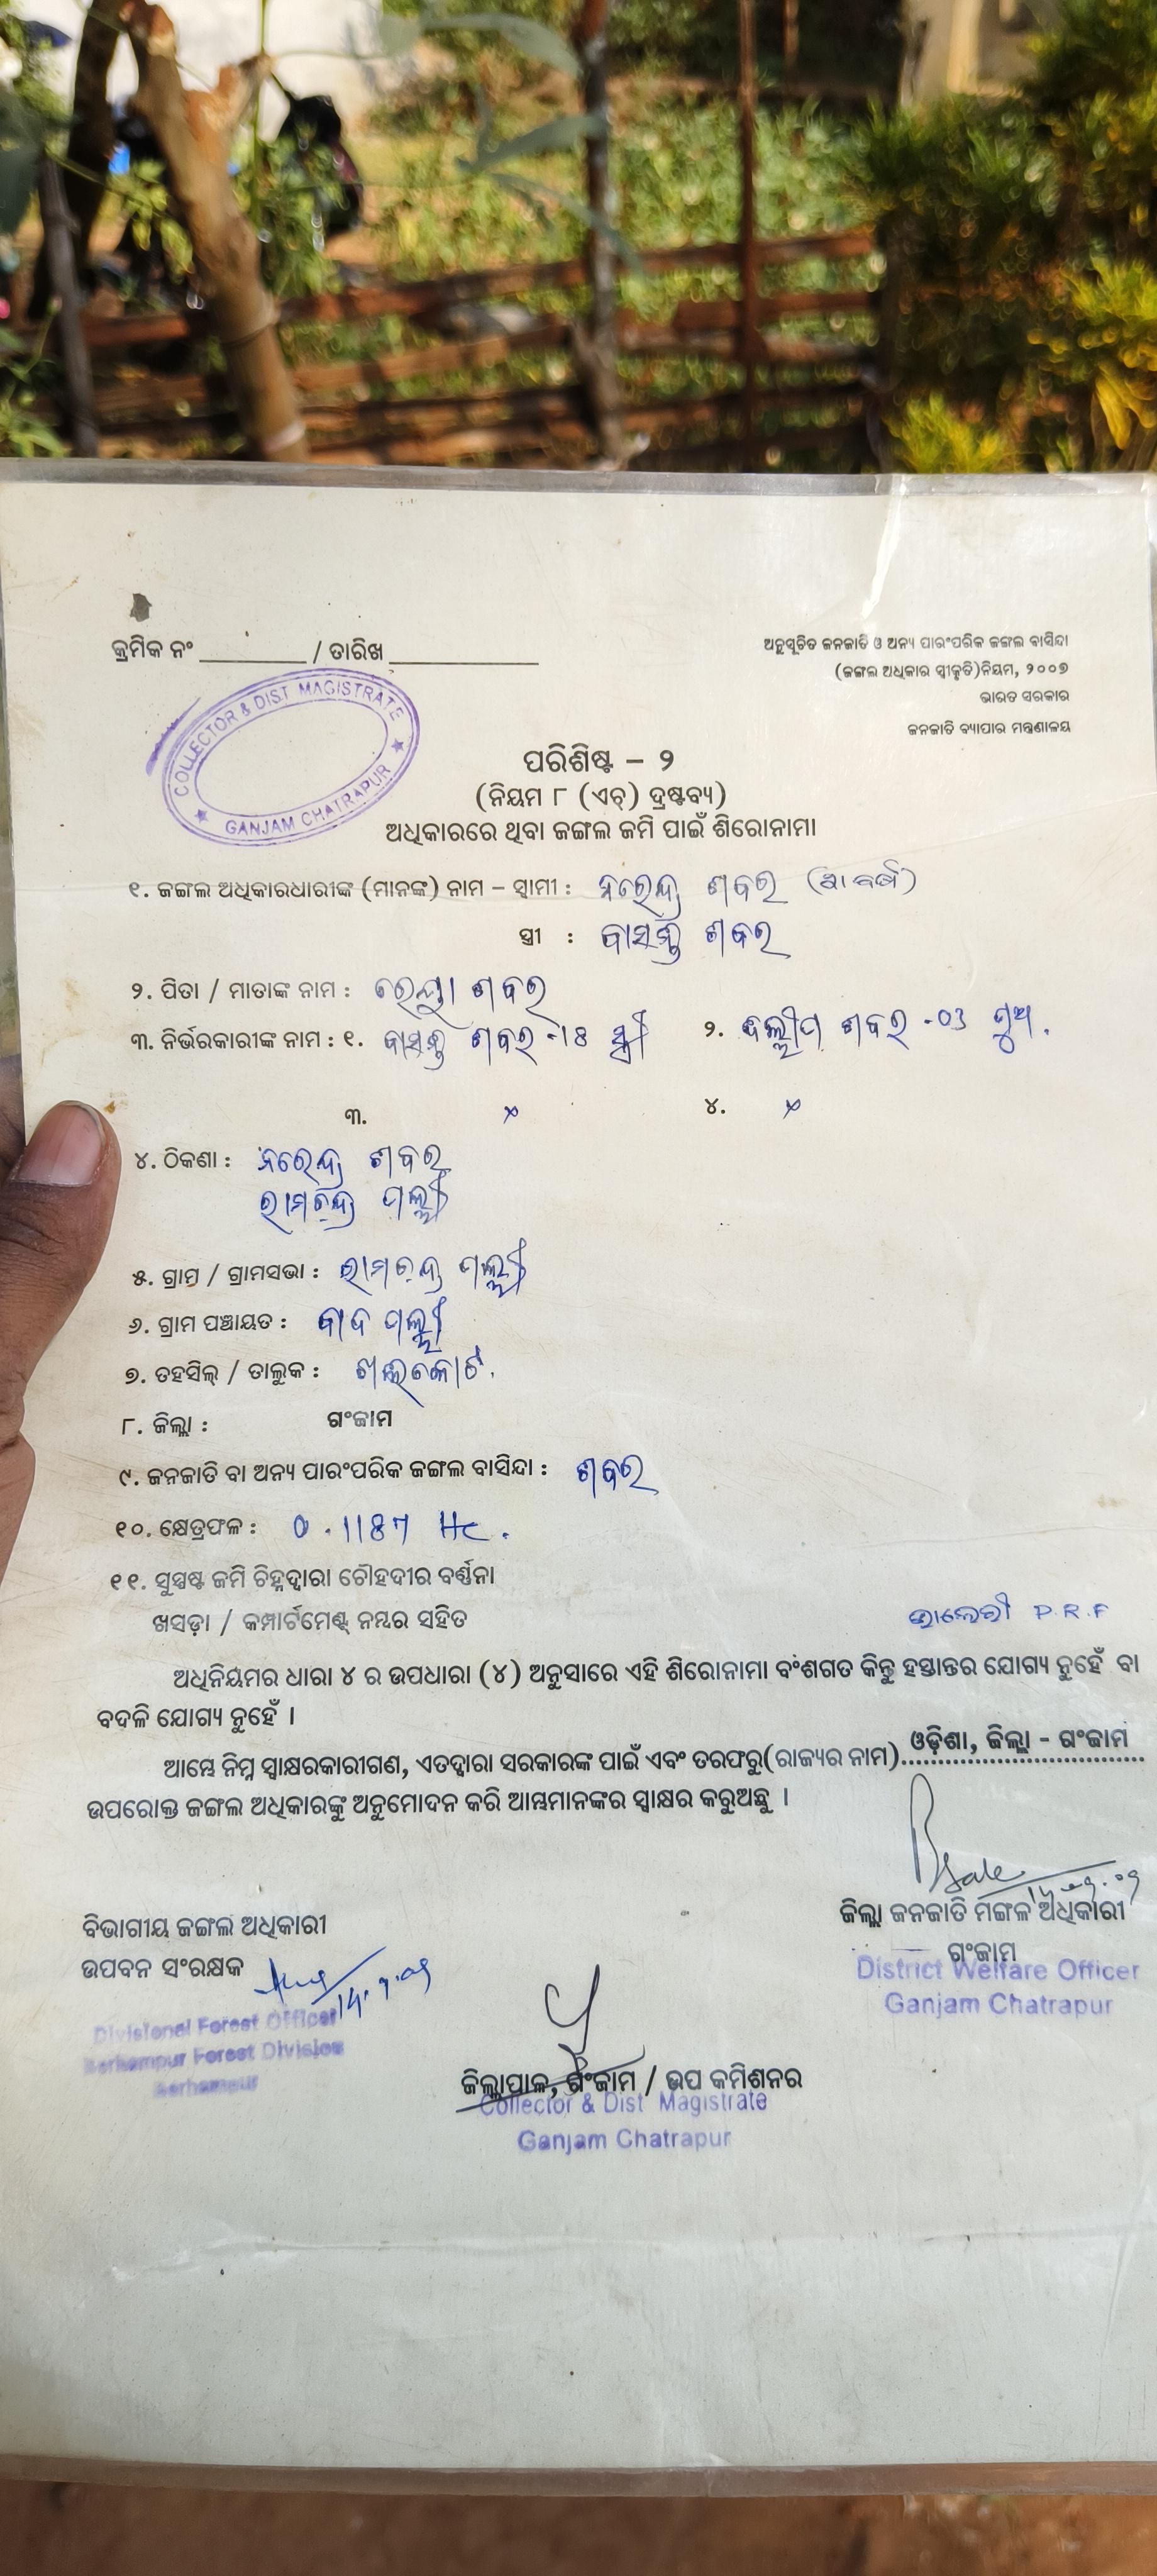 କ୍ରମିକ ନଂ ________ / ତାରିଖ ____________
ଅନୁସୂଚିତ ଜନଜାତି ଓ ଅନ୍ୟ ପାରଂପରିକ ଜଙ୍ଗଲ ବାସିନ୍ଦା
(ଜଙ୍ଗଲ ଅଧିକାର ସ୍ୱୀକୃତି)ନିୟମ, ୨୦୦୭
ଭାରତ ସରକାର
ଜନଜାତି ବ୍ୟାପାର ମନ୍ତ୍ରଣାଳୟ
COLLECTOR & DIST MAGISTRATE
GANJAM CHATRAPUR
ପରିଶିଷ୍ଟ – ୨
(ନିୟମ ୮ (ଏଚ୍) ଦ୍ରଷ୍ଟବ୍ୟ)
ଅଧିକାରରେ ଥିବା ଜଙ୍ଗଲ ଜମି ପାଇଁ ଶିରୋନାମା
୧. ଜଙ୍ଗଲ ଅଧିକାରଧାରୀଙ୍କ (ମାନଙ୍କ) ନାମ – ସ୍ୱାମୀ : ନରେନ୍ଦ୍ର ଶବର
ସ୍ତ୍ରୀ : ବାସନ୍ତୀ ଶବର
୨. ପିତା / ମାତାଙ୍କ ନାମ : ଶବର
୩. ନିର୍ଭରକାରୀଙ୍କ ନାମ : ୧. ବାସନ୍ତୀ ଶବର ସ୍ତ୍ରୀ ୨. ଶବର -03 ପୁଅ.
୩. × ୪. ×
୪. ଠିକଣା : ନରେନ୍ଦ୍ର ଶବର
ରାମଚନ୍ଦ୍ର ପଲ୍ଲୀ
୫. ଗ୍ରାମ / ଗ୍ରାମସଭା : ରାମଚନ୍ଦ୍ର ପଲ୍ଲୀ
୬. ଗ୍ରାମ ପଞ୍ଚାୟତ : ପଲ୍ଲୀ
୭. ତହସିଲ୍ / ତାଲୁକ : ଖଲିକୋଟ.
୮. ଜିଲ୍ଲା : ଗଂଜାମ
୯. ଜନଜାତି ବା ଅନ୍ୟ ପାରଂପରିକ ଜଙ୍ଗଲ ବାସିନ୍ଦା : ଶବର
୧୦. କ୍ଷେତ୍ରଫଳ : Hc.
୧୧. ସୁସ୍ପଷ୍ଟ ଜମି ଚିହ୍ନଦ୍ୱାରା ଚୌହଦୀର ବର୍ଣ୍ଣନା
ଖସଡ଼ା / କମ୍ପାର୍ଟମେଣ୍ଟ୍ ନମ୍ବର ସହିତ P.R.F
ଅଧିନିୟମର ଧାରା ୪ ର ଉପଧାରା (୪) ଅନୁସାରେ ଏହି ଶିରୋନାମା ବଂଶଗତ କିନ୍ତୁ ହସ୍ତାନ୍ତର ଯୋଗ୍ୟ ନୁହେଁ ବା
ବଦଳି ଯୋଗ୍ୟ ନୁହେଁ ।
ଆମ୍ଭେ ନିମ୍ନ ସ୍ୱାକ୍ଷରକାରୀଗଣ, ଏତଦ୍ୱାରା ସରକାରଙ୍କ ପାଇଁ ଏବଂ ତରଫରୁ(ରାଜ୍ୟର ନାମ) ଓଡ଼ିଶା, ଜିଲ୍ଲା - ଗଂଜାମ
ଉପରୋକ୍ତ ଜଙ୍ଗଲ ଅଧିକାରଙ୍କୁ ଅନୁମୋଦନ କରି ଆମ୍ଭମାନଙ୍କର ସ୍ୱାକ୍ଷର କରୁଅଛୁ ।
ବିଭାଗୀୟ ଜଙ୍ଗଲ ଅଧିକାରୀ
ଉପବନ ସଂରକ୍ଷକ
14.9.09
Divisional Forest Officer
Berhampur Forest Division
Berhampur
ଜିଲ୍ଲା ଜନଜାତି ମଙ୍ଗଳ ଅଧିକାରୀ
ଗଂଜାମ
District Welfare Officer
Ganjam Chatrapur
ଜିଲ୍ଲାପାଳ, ଗଂଜାମ / ଉପ କମିଶନର
Collector & Dist Magistrate
Ganjam Chatrapur